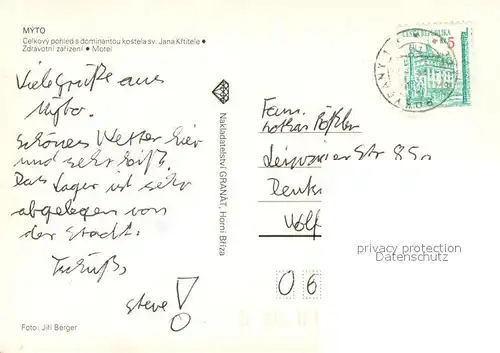 MÝTO
Celkový pohled s dominantou kostela sv. Jana Křtitele •
Zdravotní zařízení • Motel
Viele Grüße aus
Myto.
Schönes Wetter hier
und sehr heiß.
Das Lager ist sehr
abgelegen von
der Stadt.
Tschüß,
Steve!
Foto: Jiří Berger
Nakladatelství GRANÁT, Horní Bříza
ČESKÁ REPUBLIKA
Kč 5
Fam.
Lothar
Str 85
06
privacy protection
Datenschutz